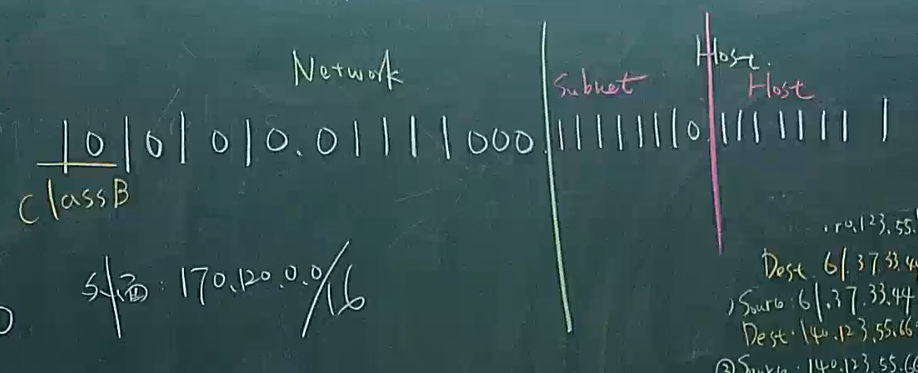 Network
Subnet
Host
Host
10101010.01111000.11111110.11111111
Class B
外面:170.120.0.0/16
0.123.55.
Dest. 61.37.33.4
Source:61.37.33.44
Dest.140.123.55.66
Source:140.123.55.66